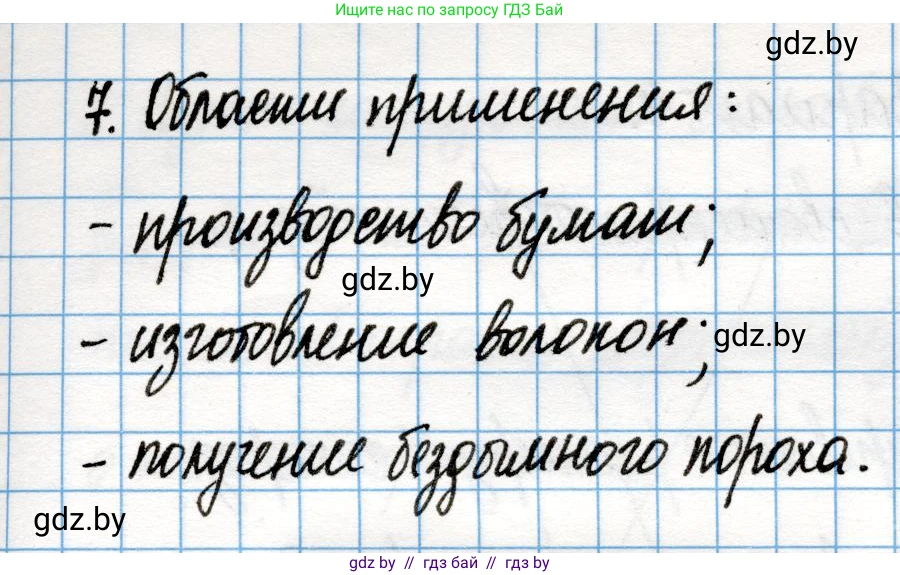 Ищите нас по запросу ГДЗ Бай
gdz.by
7. Области применения:
- производство бумаги;
gdz.by
- изготовление волокон;
gdz.by
- получение бездымного пороха.
gdz.by
gdz by // гдз бай // gdz by